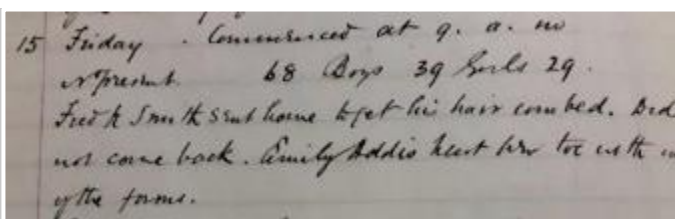 15 Friday. Commenced at 9. a. m
No present. 68 Boys 39 Girls 29.
Fredk Smith sent home to get his hair combed. Did
not come back. Emily Addis hurt her toe with
of the forms.